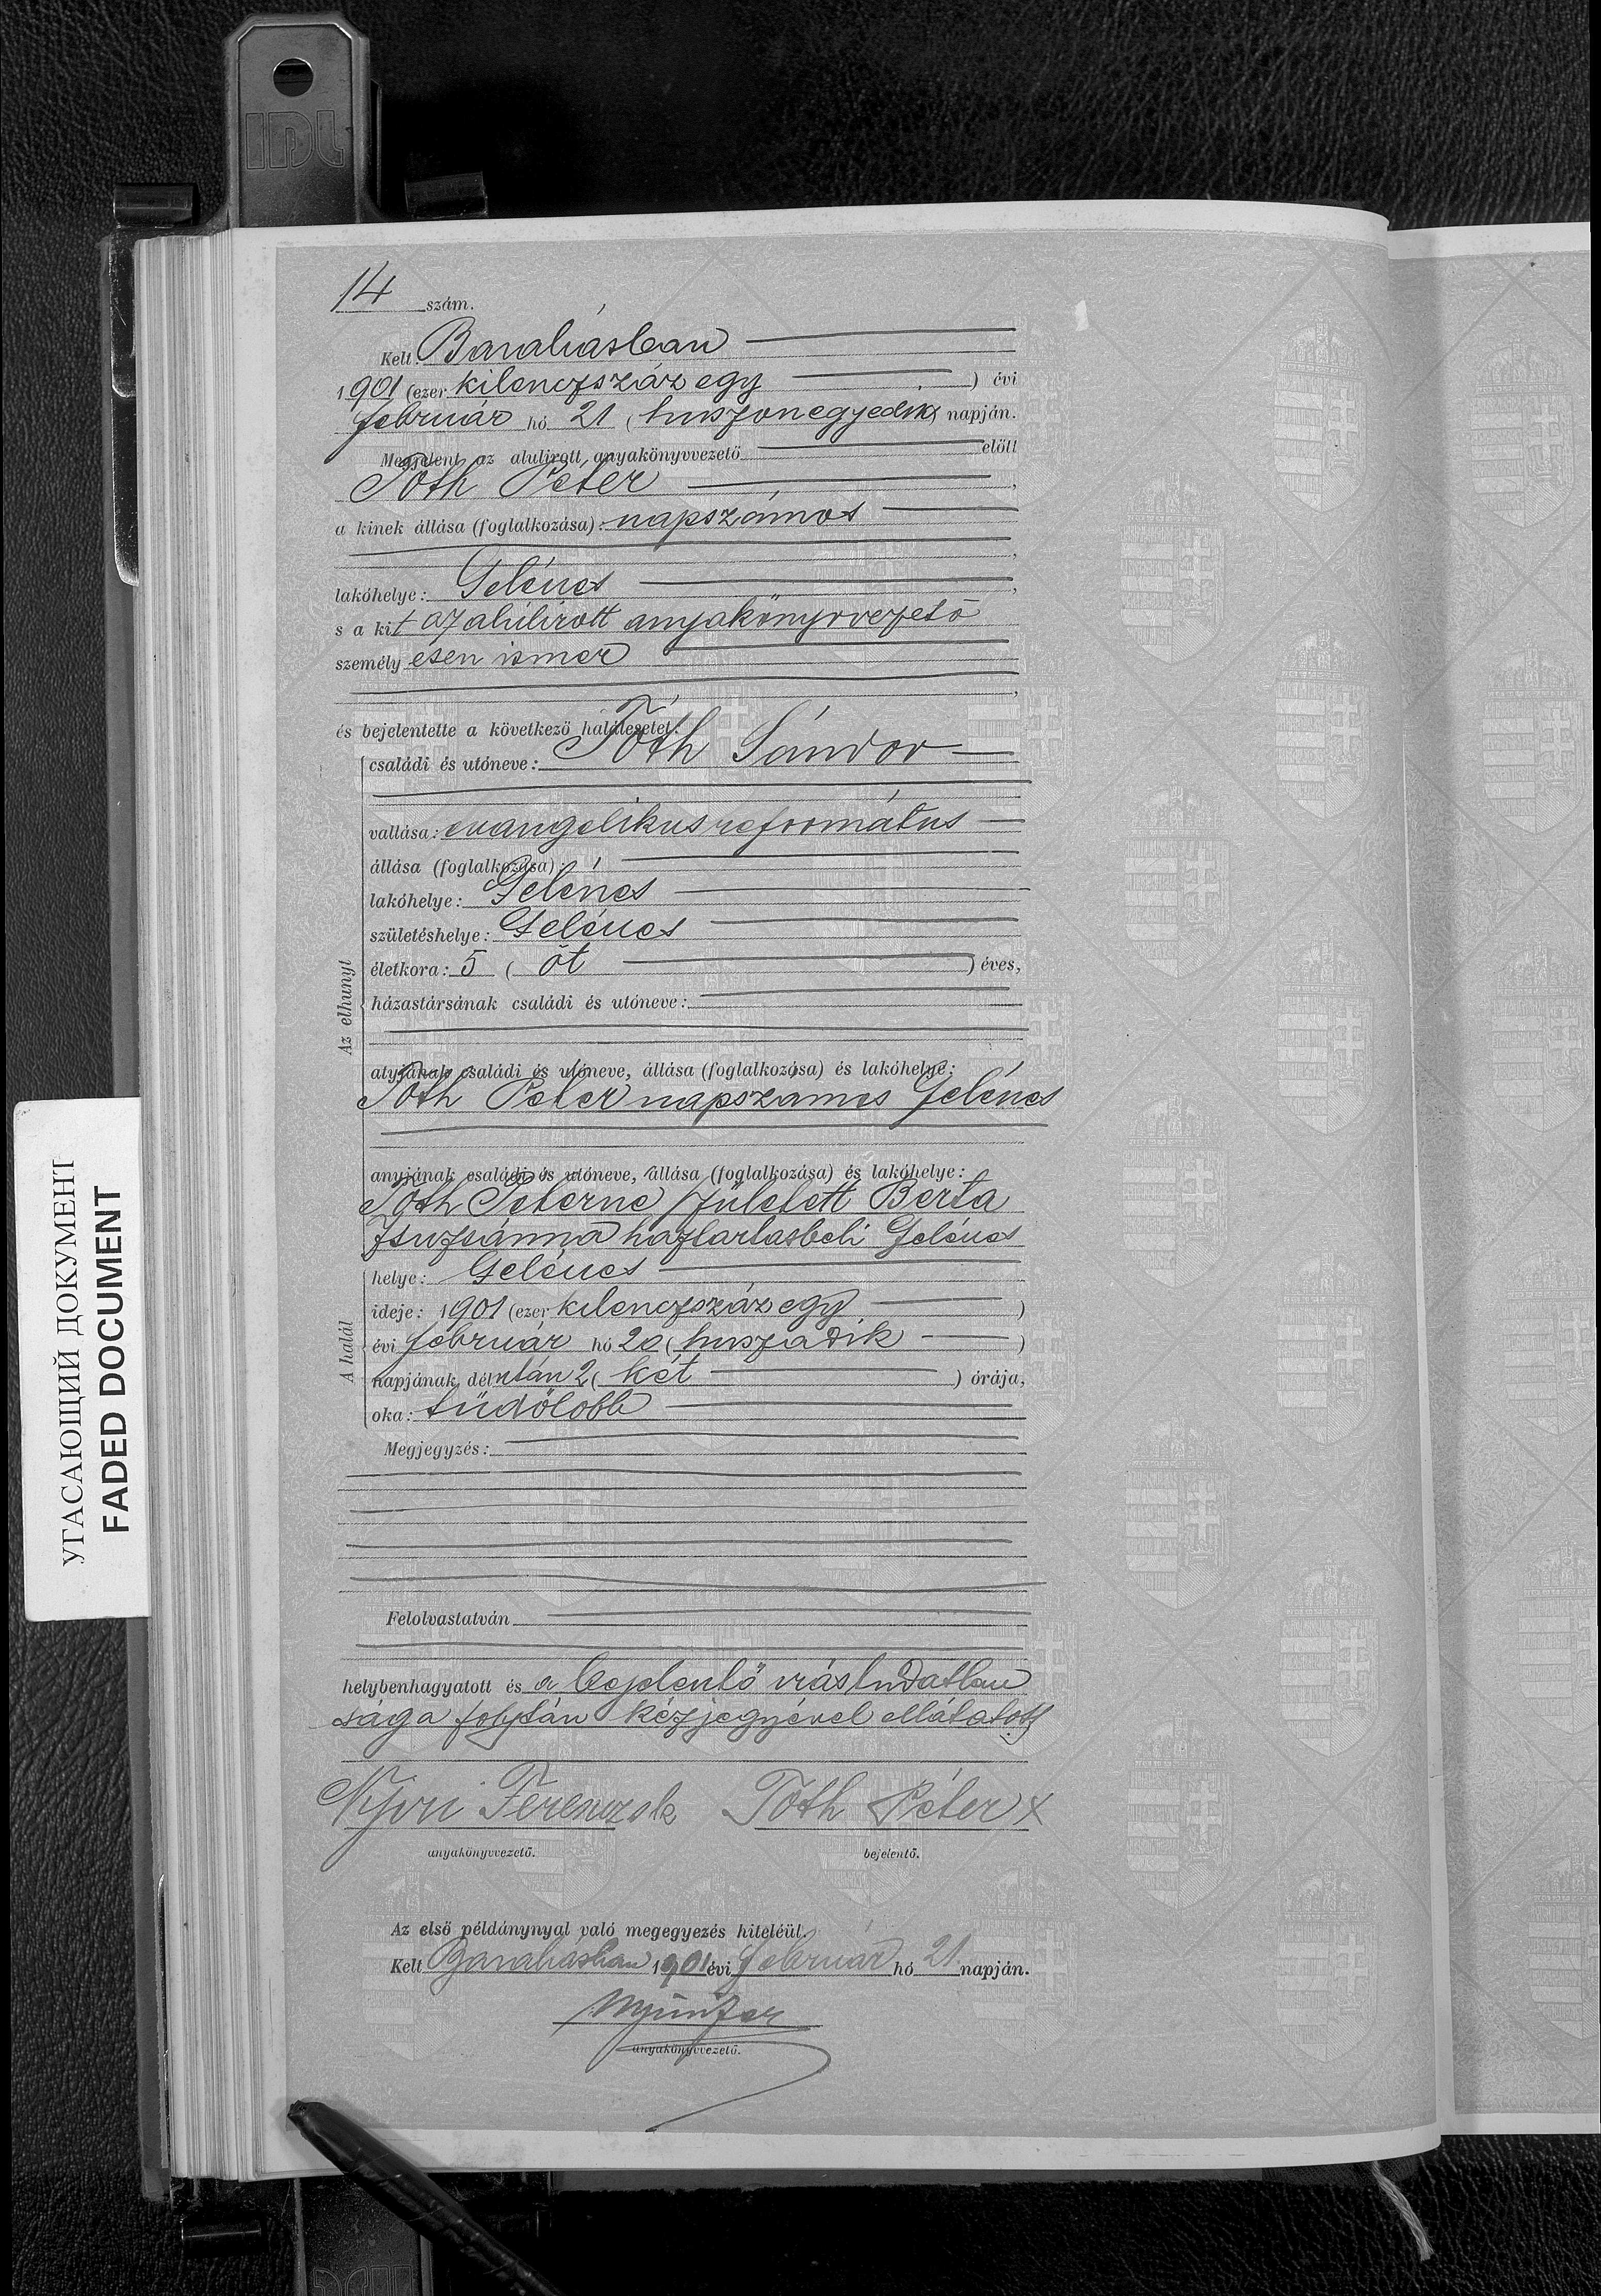 IDL
14 szám.
Kelt: Barabásban
1901 (ezer kilenczszáz egy ) évi
február hó 21 ( huszonegyedik) napján.
Megjelent az alulirott anyakönyvvezető előtt
Tóth Péter ,
a kinek állása (foglalkozása): napszámos
,
lakóhelye: Gelénes ,
s a kit az alúlirott anyakönyvvezető
személyesen ismer
,
és bejelentette a következő halálesetet:
családi és utóneve: Tóth Sándor
vallása: evangelikus református
állása (foglalkozása):
lakóhelye: Gelénes
születéshelye: Gelénes
életkora: 5 ( öt ) éves,
házastársának családi és utóneve:
Az elhunyt
atyjának családi és utóneve, állása (foglalkozása) és lakóhelye:
Tóth Péter napszamos Gelénes
anyjának családi és utóneve, állása (foglalkozása) és lakóhelye:
Tóth Peterne született Berta
Zsuzsánna háztartasbeli Gelénes
helye: Gelénes
ideje: 1901 (ezer kilenczszáz egy )
évi február hó 20 ( huszadik )
napjának délután 2 ( két ) órája,
oka: tüdőlobb
A halál
Megjegyzés:
Felolvastatván
helybenhagyatott és a bejelentő irástudatlan
sága folytán kézjegyével elláttatott
Tóth Péter x
anyakönyvvezető. bejelentő.
Az első példánynyal való megegyezés hiteléül.
Kelt Barabásban 1901 évi február hó 21 napján.
anyakönyvvezető.
УГАСАЮЩИЙ ДОКУМЕНТ
FADED DOCUMENT